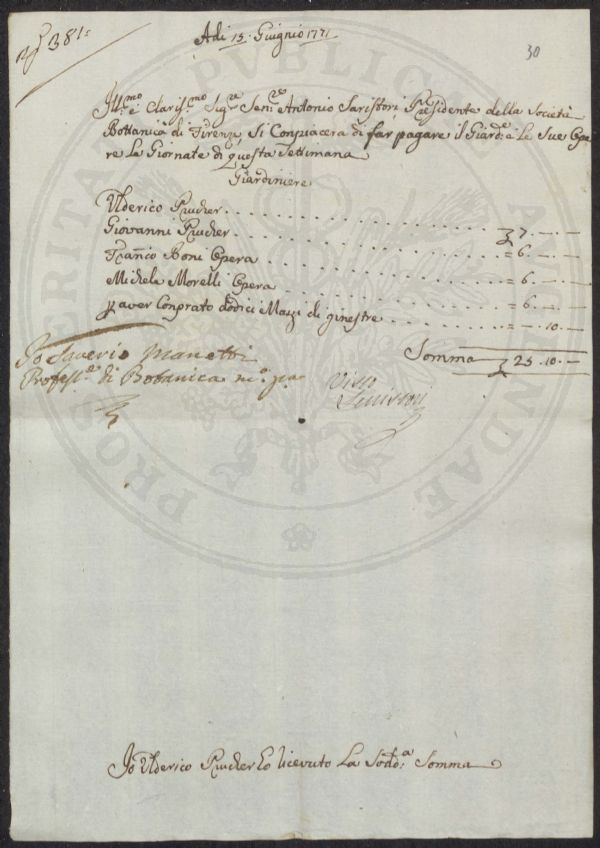 N° 381:
30
Adi 15. Giugnio 1771
Ill:mo e Clariss:mo Sig:re Sen:re Antonio Saristori Presidente della Società
Bottanica di Firenze Si Conpiacera di far pagare il Giard:e e Le Sue Ope
re Le Giornate di questa Settimana
Giardiniere
Ulderico Prucher . . . . . . . . . . . . . . . . . . . . 7. — —
Giovanni Prucher . . . . . . . . . . . . . . . . . = 6. — —
Franco Boni Opera . . . . . . . . . . . . . . . = 6. — —
Michele Morelli Opera . . . . . . . . . . . . . = 6. — —
p aver Conprato dodici Mazzi di ginestre . . . . . = — 10. —
Somma 25. 10. —
Io Saverio Manetti
Profess:re di Botanica m:o p:a
Visto
Io Ulderico Prucher ho ricevuto La Sodd:a Somma
PROSPERITATI PUBLICAE AUGENDAE